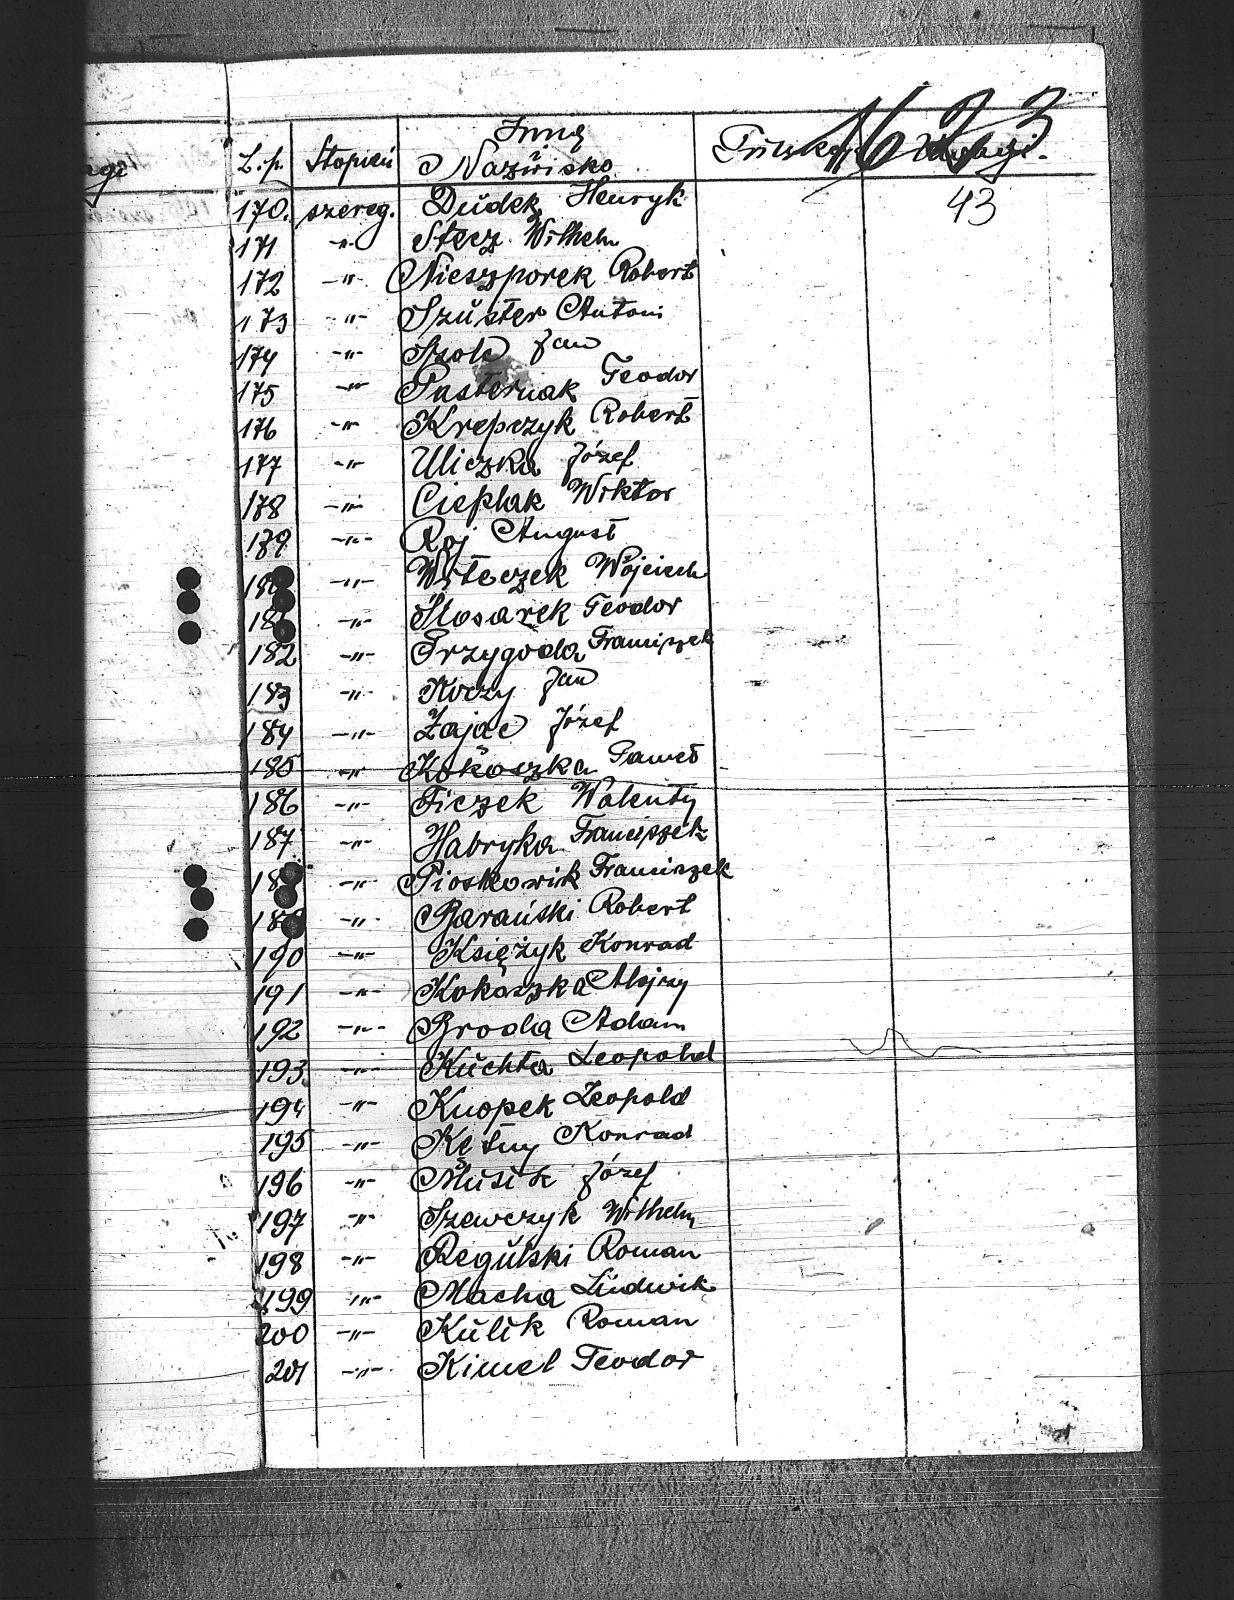 1623
L.p. Stopień Imię Nazwisko Uwagi.
43
170. szereg. Dudek Henryk
171 -"- Stecz Wilhelm
172 -"- Nieszporek Robert
173 -"- Szuster Antoni
174 -"- Jan
175 -"- Pasternak Teodor
176 -"- Krepczyk Robert
177 -"- Uliczka Józef
178 -"- Cieplak Wiktor
179 -"- Roj August
180 -"- Witeczek Wojciech
181 -"- Ślosarek Teodor
182 -"- Przygoda Franciszek
183 -"- Koczy Jan
184 -"- Zając Józef
185 -"- Kokoszka Paweł
186 -"- Ficzek Walenty
187 -"- Habryka Franciszek
188 -"- Pioskowik Franciszek
189 -"- Barański Robert
190 -"- Księżyk Konrad
191 -"- Kokoszka Alojzy
192 -"- Broda Adam
193 -"- Kuchta Leopold
194 -"- Knopek Leopold
195 -"- Konrad
196 -"- Musik Józef
197 -"- Szewczyk Wilhelm
198 -"- Regulski Roman
199 -"- Macha Ludwik
200 -"- Kulik Roman
201 -"- Kimel Teodor